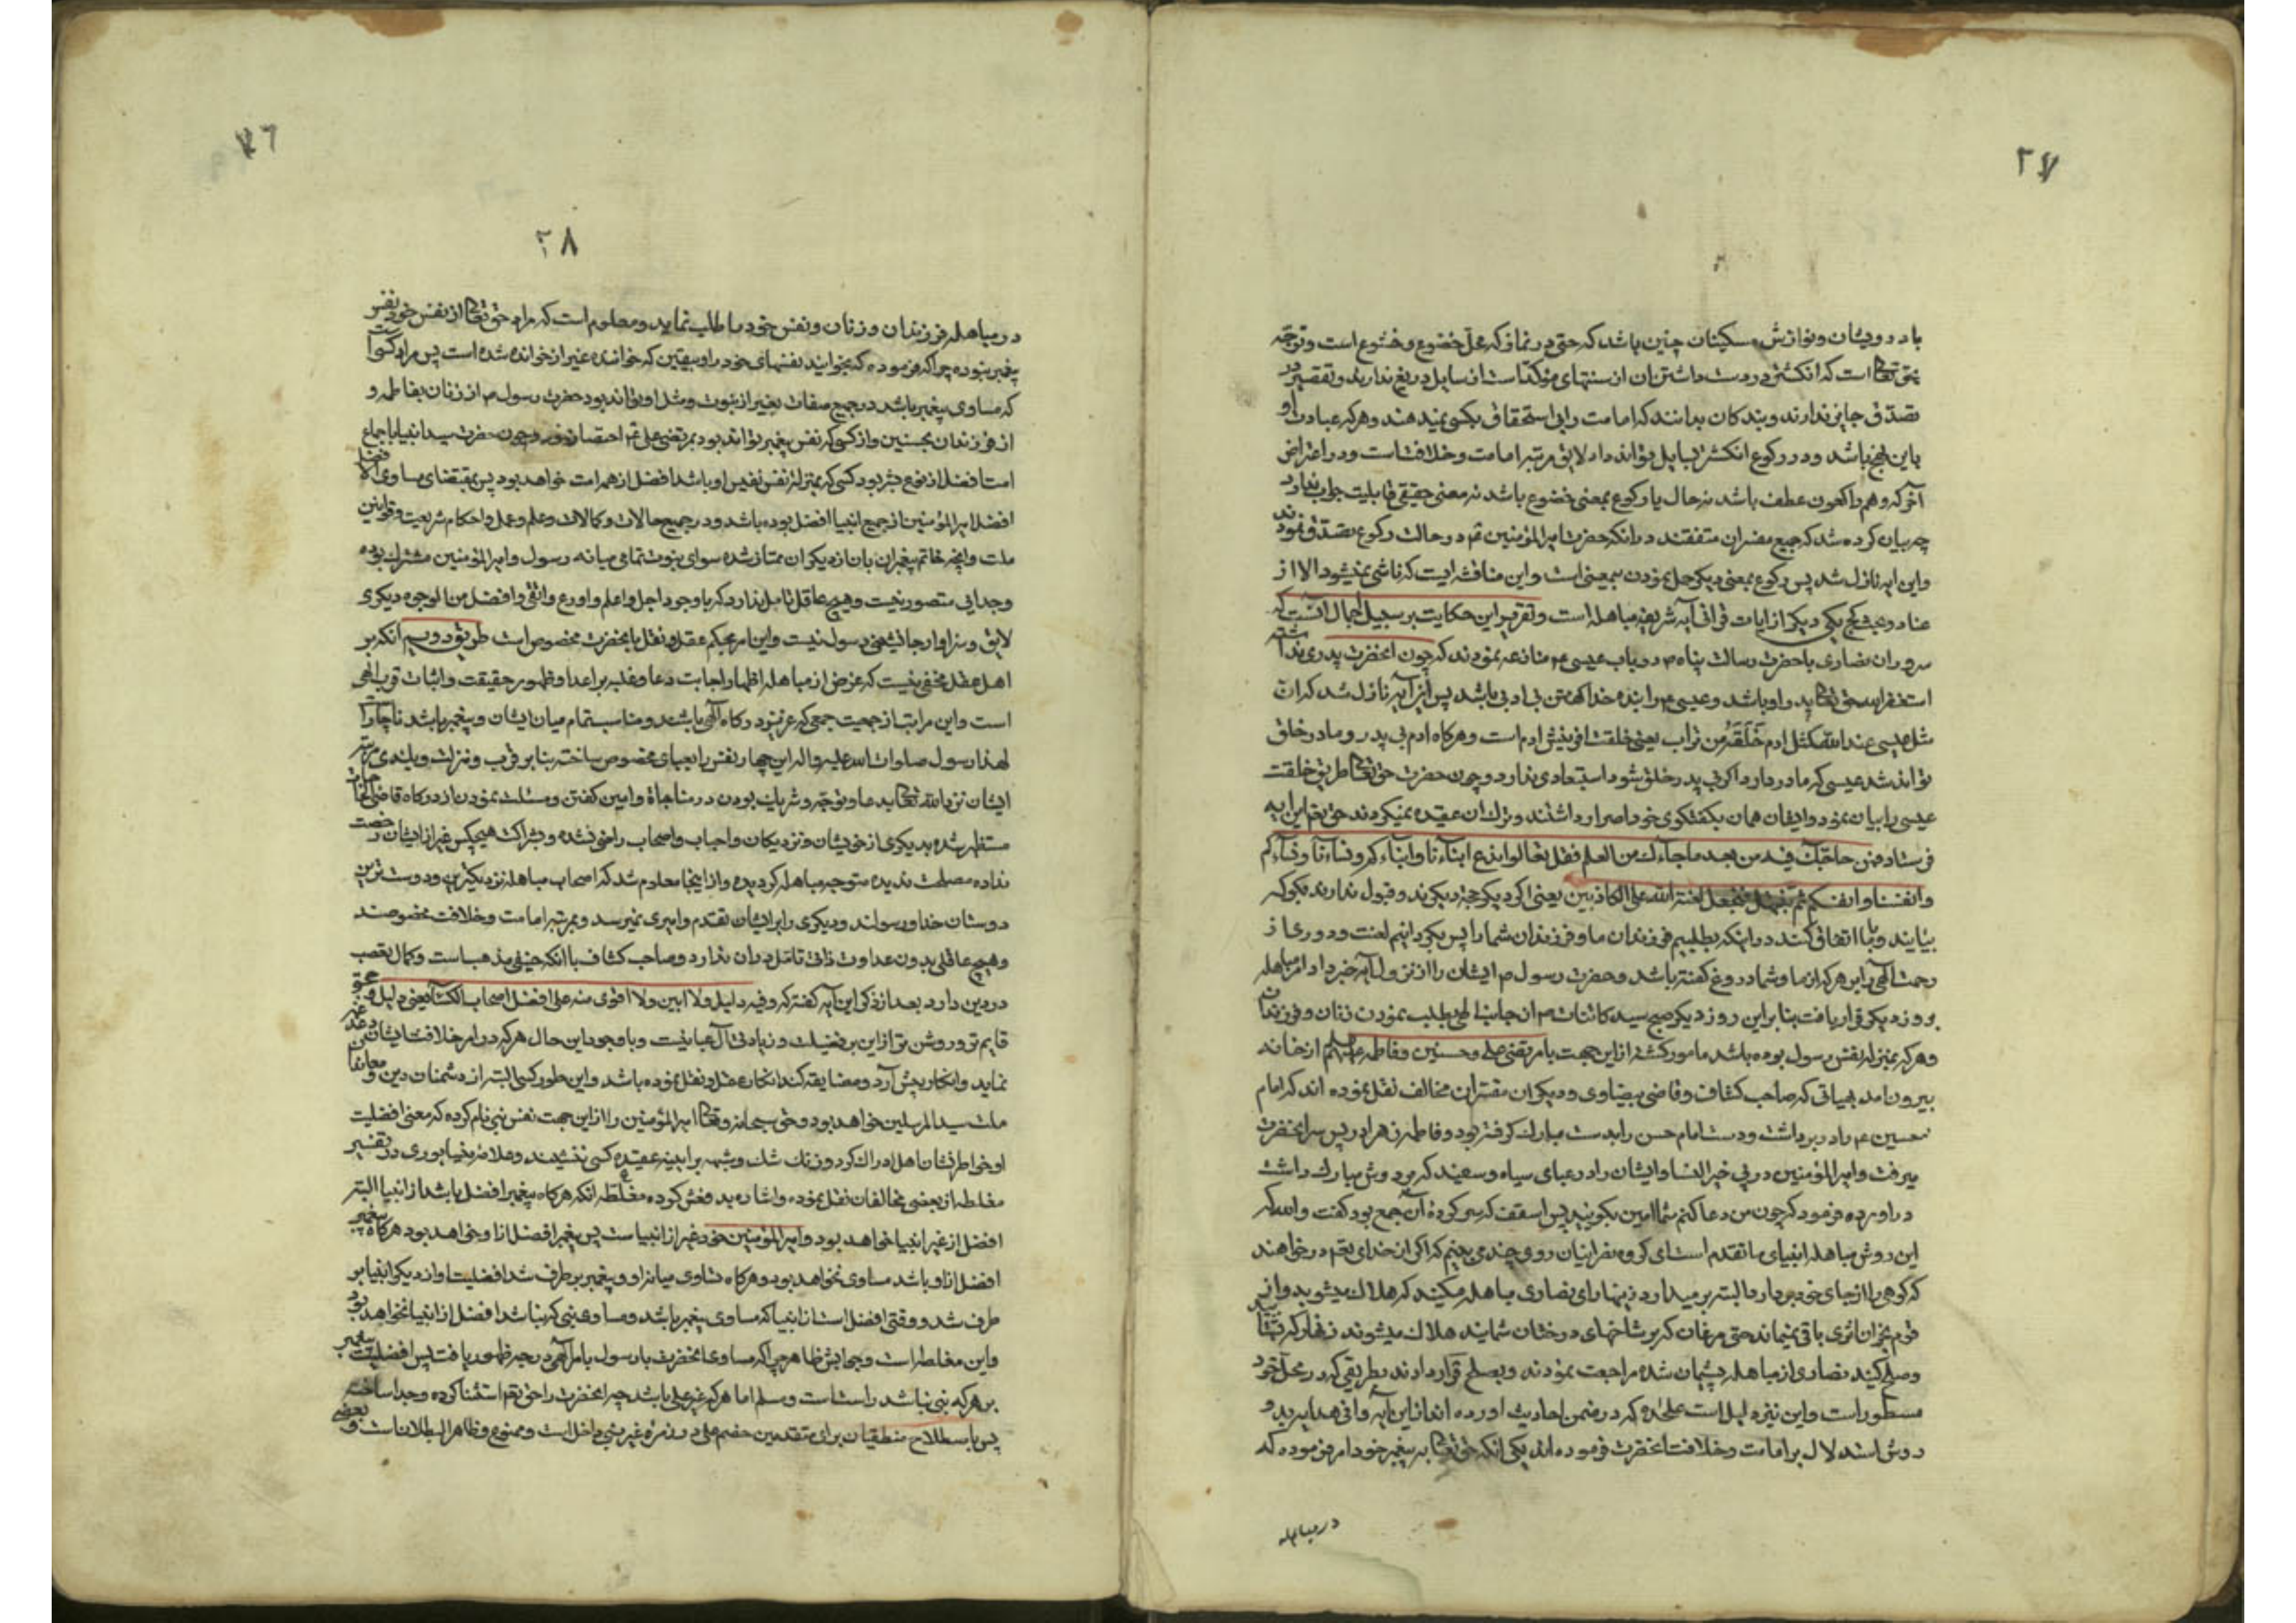 ۲۷
با درویشان و نوازش مسکینان چنین باشد که حتی در نماز که محل خضوع و خشوع است و توجه
بحق تعالی است که انکشتر در دست داشتن ان از سنتهای مؤکد است از سایل دریغ ندارند و تقصیر در
تصدق جایز ندارند و بندکان بدانند که امامت را بی استحقاق بکسی نمیدهند و هر که عبادت او
باین نهج باشد و در رکوع انکشتر بسایل تواند داد لایق مرتبه امامت و خلافت است و در اعتراض
آخر که و هم راکعون عطف باشد نه حال یا رکوع بمعنی خضوع باشد نه معنی حقیقی قابلیت جواب ندارد
چه بیان کرده شد که جمیع مفسران متفقند در انکه حضرت امیر المؤمنین ع در حالت رکوع تصدق نمودند
و این ایه نازل شد پس رکوع بمعنی دیکر حمل نمودن بیمعنی است و این مناقشه ایست که ناشی نمیشود الا از
عناد و عبث کج یکی دیکر از ایات قرانی آیه شریفه مباهله است و تقریر این حکایت بر سبیل اجمال انست که
سروران نصاری با حضرت رسالت پناه ص در باب عیسی ع منازعه نمودند که چون انحضرت پدری نداشته
استغفر الله حق تعالی پدر او باشد و عیسی ع را بنده خدا کفتن بی ادبی باشد پس این آیه نازل شد که ان
مثل عیسی عند الله کمثل ادم خلقه من تراب یعنی خلقت افرینش ادم است و هرکاه ادم بی پدر و مادر خلق
تواند شد عیسی که مادر دارد اکر بی پدر خلق شود استبعادی ندارد و چون حضرت حق تعالی طریق خلقت
عیسی را بیان نمود و ایشان همان بکفتکوی خود اصرار داشتند و ترک ان عقیده نمیکردند حق تعم این ایه
فرستاد فمن حاجک فیه من بعد ما جاءک من العلم فقل تعالوا ندع ابناءنا و ابناءکم و نساءنا و نساءکم
و انفسنا و انفسکم ثم نبتهل فنجعل لعنة الله علی الکاذبین یعنی اکر دیکر حجة دیکویند و قبول ندارند بکو که
بیایند و با ما اتفاق کنند در اینکه بطلبیم فرزندان ما و فرزندان شما را پس بکردانیم لعنت و دوری از
رحمت الهی را بر هر که از ما و شما دروغ کفته باشد و حضرت رسول ص ایشان را از نزول آیه خبر داد امر مباهله
بروز دیکر قرار یافت بنا براین روز دیکر صبح سید کائنات ص از جانب الهی بطلب نمودن زنان و فرزندان
و هر که بمنزله نفس رسول بوده باشد مامور کشته از این جهت با مرتضی علی و حسنین و فاطمه علیهم السلام از خانه
بیرون امد بهیاتی که صاحب کشاف و قاضی بیضاوی و دیکران مفسران مخالف نقل نموده اند که امام
حسین ع را در بر داشت و دست امام حسن را بدست مبارک کرفته بود و فاطمه زهرا در پس سر انحضرت
میرفت و امیر المؤمنین در پی خیر النسا و ایشان را در عبای سیاه و سعید که بر دوش مبارک داشت
در اورده فرمود که چون من دعا کنم شما امین بکویید پس اسقف که سرکرده آن جمع بود کفت والله که
این روش مباهله انبیای ما تقدم است ای کروه نصرانیان روی چندی بینم که اکر از خدای تعم در خواهند
که کوهی را از جای خود بردارد البته برمیدارد زینهار ای نصاری مباهله مکنید که هلاک میشوید و از
قوم نجران اثری باقی نمیماند حتی مرغان که بر شاخهای درختان شمایند هلاک میشوند زنهار که
و صلح کنید نصاری از مباهله پشیمان شده مراجعت نمودند و بصلح قرار دادند بطریقی که در محل خود
مسطور است و این نیز دلیل است علیحده که در ضمن احادیث اورده اند از این آیه وافی هدایه بدو
روش استدلال بر امامت و خلافت انحضرت فرموده اند یکی انکه حق تعالی به پیغمبر خود امر فرموده که
در مباهله
۲۶
۲۸
در مباهله فرزندان و زنان و نفس خود را طلب نماید و معلوم است که مراد حق تعالی از نفس خود نفس
پیغمبر نبوده چرا که فرموده که بخوانید نفسهای خود را و بیقین که خواننده غیر از خوانده شده است پس مراد کسی است
که مساوی پیغمبر باشد در جمیع صفات بغیر از نبوت و مثل او تواند بود حضرت رسول ص از زنان بفاطمه و
از فرزندان بحسنین و از کسی که نفس پیغمبر تواند بود بمرتضی علی ع اختصار نمود و چون حضرت سید انبیا باجماع
امت افضل از نوع بشر بود کسی که بمنزله نفس نفیس او باشد افضل از همه امت خواهد بود پس بمقتضای مساوی الافضل
افضل امیر المؤمنین از جمیع انبیا افضل بوده باشد و در جمیع حالات و کمالات و علم و عمل و احکام شریعت و قوانین
ملت و انچه خاتم پیغمبران بان از دیکران ممتاز شده سوای نبوت تمامی میانه رسول و امیر المؤمنین مشترک بوده
و جدایی متصور نیست و هیچ عاقل تامل ندارد که با وجود اجل و اعلم و اورع و اتقی و افضل من الوجوه دیکری
لایق و سزاوار جانشینی رسول نیست و این امر بحکم عقل و نقل بانحضرت مخصوص است طریق دویم انکه بر
اهل عقل مخفی نیست که غرض از مباهله اظهار اجابت دعا و غلبه بر اعدا و ظهور حقیقت و اثبات قرب الهی
است و این مراتب از جمعیت جمعی که عزیز درکاه آلهی باشند و مناسبت تمام میان ایشان و پیغمبر باشد ناچار است
لهذا رسول صلوات الله علیه واله این چهار نفس را بعبای مخصوص ساخته بنا بر قرب و منزلت و بلندی مرتبه
ایشان نزد الله تعالی بدعا و توجه و شریک بودن در مناجاة و امین کفتن و مسئلت نمودن از درکاه قاضی الحاجات
مستظهر شده بدیکری از خویشان و نزدیکان و احباب و اصحاب راضی نشده و بشراکت هیچکس غیر از ایشان رخصت
نداده مصلحت ندیده متوجه مباهله کردیده و از اینجا معلوم شد که اصحاب مباهله نزدیکترین و دوست ترین
دوستان خدا و رسولند و دیکری را بر ایشان تقدم و امیری نمیرسد و بمرتبه امامت و خلافت مخصوصند
و هیچ عاقلی بدون عداوت ذاتی تامل در ان ندارد و صاحب کشاف با انکه حنفی مذهب است و کمال تعصب
در دین دارد بعد از ذکر این آیه کفته که و فیه دلیل ولا ابین ولا اقوی منه علی افضل اصحاب الکساء یعنی دلیل و حجتی
قایم تر و روشن تر از این بر فضیلت و زیادتی آل عبا نیست و با وجود این حال هر که در امر خلافت ایشان دغدغه
نماید و انکار پیش آرد و مضایقه کند انکار عقل و نقل نموده باشد و این طور کسی البته از دشمنان دین و معاندان
ملت سید المرسلین خواهد بود و حق سبحانه و تعالی امیر المؤمنین را از این جهت نفس نبی نام کرده که معنی افضلیت
او خواطر نشان اهل ادراک کردد و زنک شک و شبهه بر ایینه عقیده کسی ننشیند و علامه نیشابوری در تفسیر
مغلطه از بعضی مخالفان نقل نموده و اشاره بدفعش کرده مغلطه انکه هرکاه پیغمبر افضل باشد از انبیا البته
افضل از غیر انبیا خواهد بود و امیر المؤمنین خود غیر از انبیاست پس پیغمبر افضل از او خواهد بود هرکاه پیغمبر
افضل از او باشد مساوی نخواهد بود و هرکاه تساوی میانه او و پیغمبر بر طرف شد افضلیت او از دیکر انبیا بر
طرف شد و وقتی افضل است از انبیا که مساوی پیغمبر باشد و مساوی نبی که نباشد افضل از انبیا نخواهد بود
و این مغلطه است و جوابش ظاهر چرا که مساوی انحضرت با رسول بامر آلهی در حیز ظهور یافت پس افضلیت پیغمبر
بر هر که نبی نباشد راست است و مسلم اما هر که غیر علی باشد چه انحضرت را حق تعم استثنا کرده و جدا ساخته
پس باصطلاح منطقیان برای متقدمین خصم علی در زمره غیر نبی داخل است و ممنوع و ظاهر البطلان است و بعضی